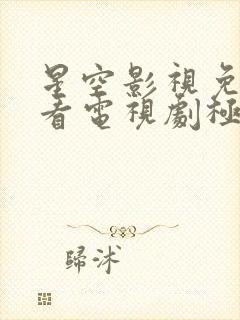 星空影視免
看電視劇極
歸沭